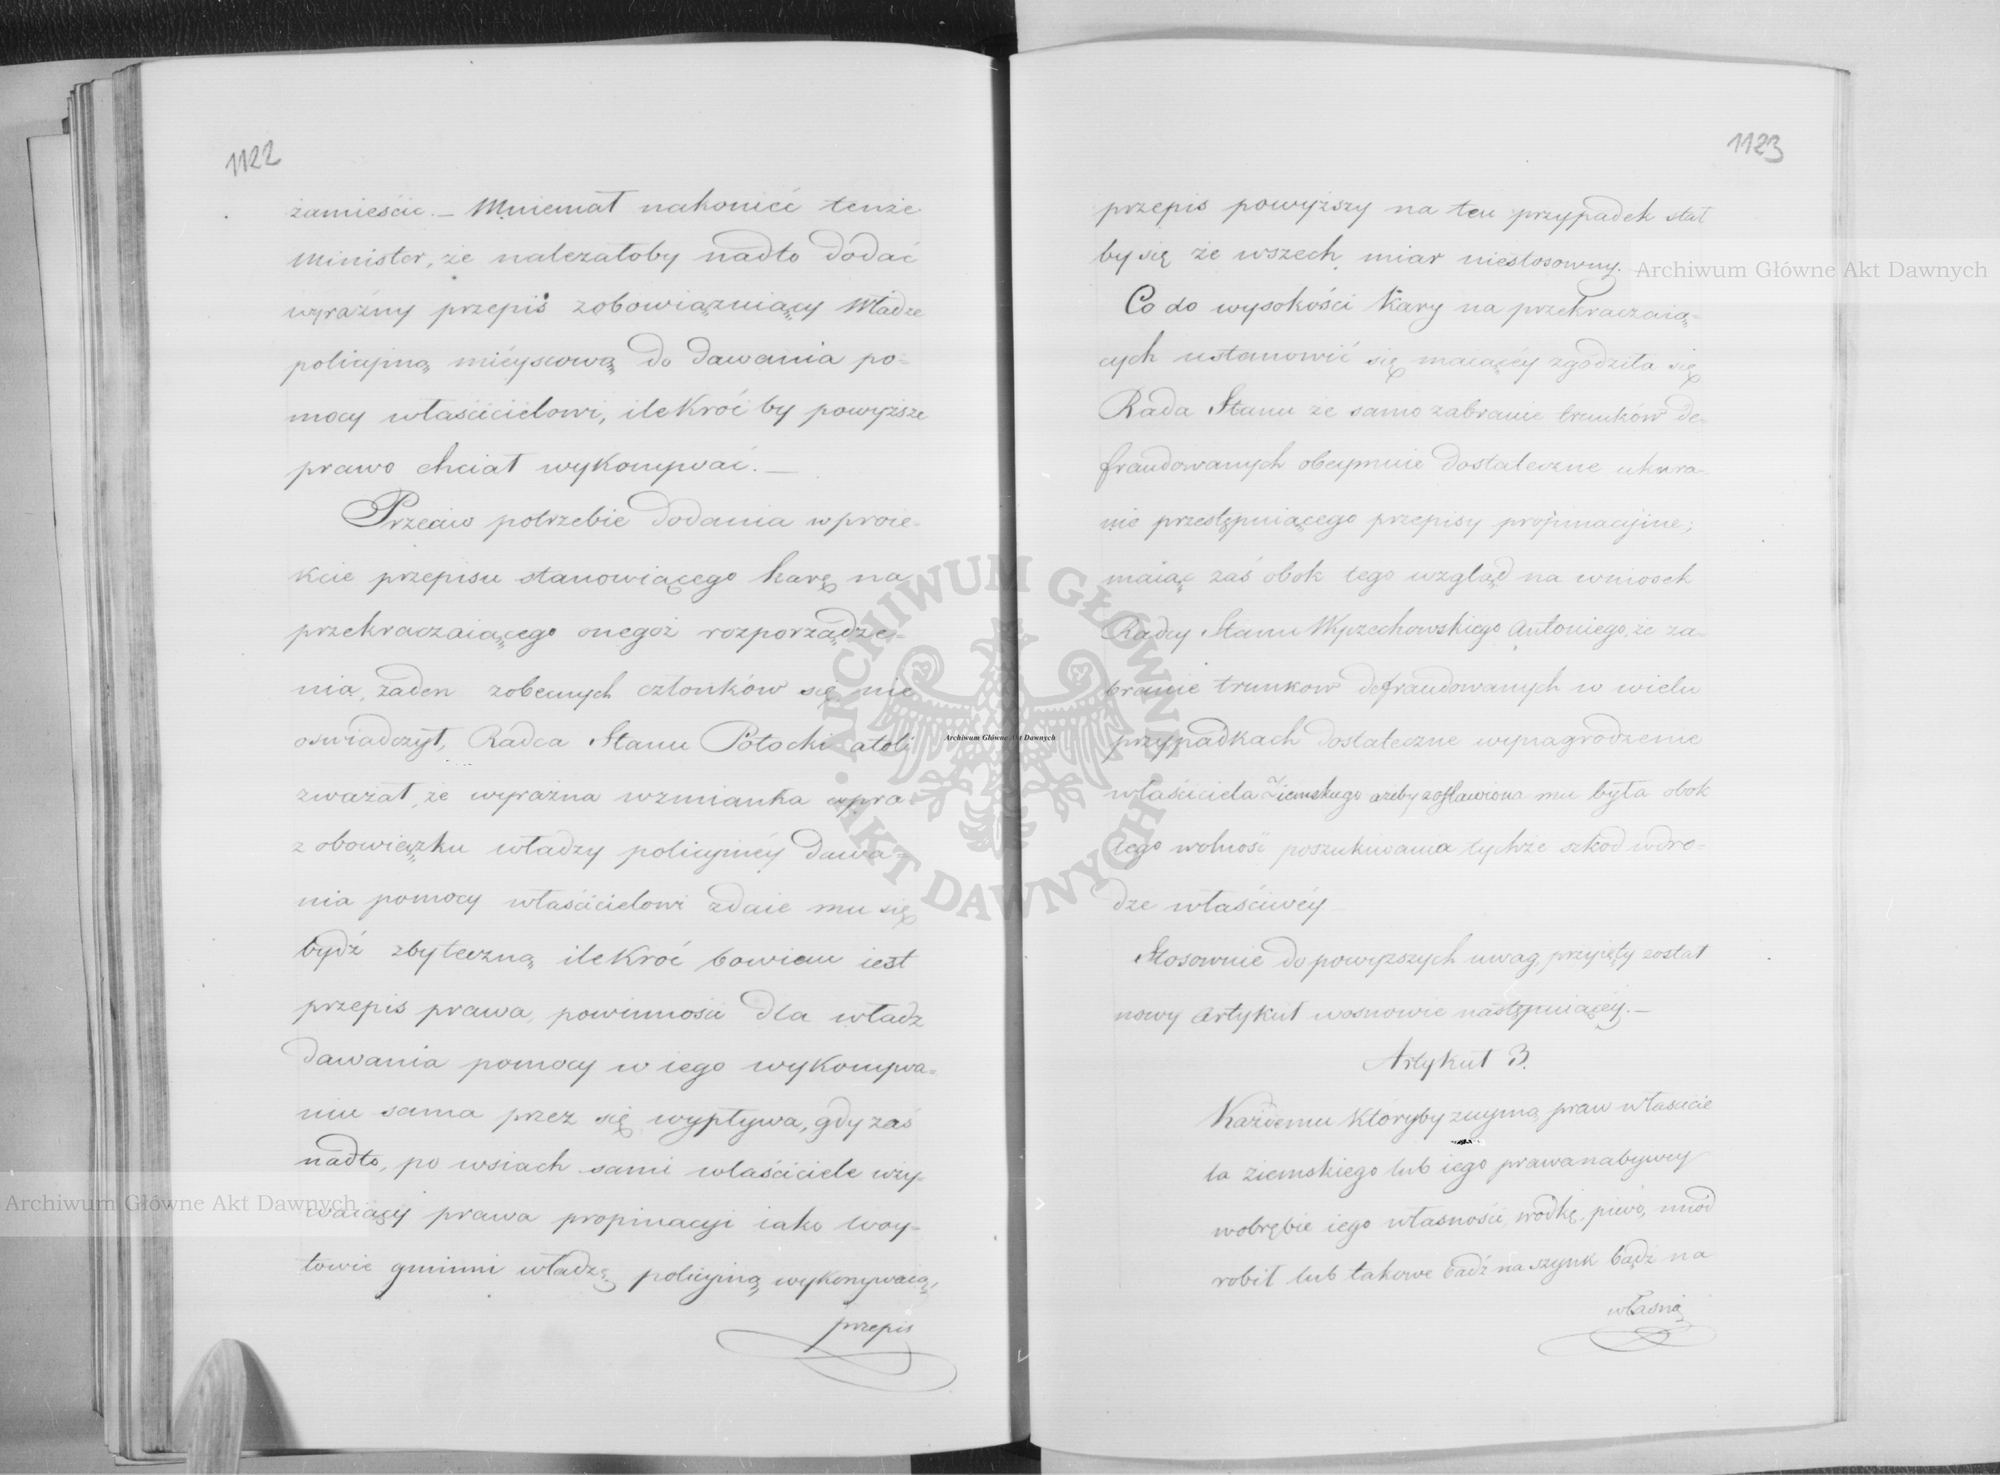 1122
zamieścić. — Mniemał nakoniéć tenże
Minister, że należałoby nadto dodać
wyraźny przepis zobowiązuiący Władze
policyjną mieyscową do dawania po-
mocy właścicielowi, ilekroć by powyższe
prawo chciał wykonywać. —
Przeciw potrzebie dodania w proie-
kcie przepisu stanowiącego karę na
przekraczaiącego onegoż rozporządze-
nia, żaden z obecnych członków się nie
oswiadczył, Radca Stanu Potocki atoli
zważał, że wyraźna wzmianka w pra-
z obowiązku władzy policyinéy dawa-
nia pomocy właścicielowi zdaie mu się
bydź zbyteczną ilekroć bowiem iest
przepis prawa, powinność dla władz
dawania pomocy w iego wykonywa-
niu sama przez się wypływa, gdy zaś
nadto, po wsiach sami właściciele uży-
waiący prawa propinacyi iako woy-
towie gminni władzę policyiną wykonywaią,
przepis
1123
przepis powyższy na ten przypadek stał
by się ze wszech miar niestosowny.
Co do wysokości kary na przekraczaią-
cych ustanowić się maiącéy zgodziła się
Rada Stanu że samo zabranie trunków de-
fraudowanych obeymuie dostateczne ukara-
nie przestępuiącego przepisy propinacyine;
maiąc zaś obok tego wzgląd na wniosek
Radcy Stanu Wyczechowskiego Antoniego, że za-
branie trunkow defraudowanych w wielu
przypadkach dostateczne wynagrodzenie
właściciela Ziemskiego ażeby zostawiona mu była obok
tego wolność poszukiwania tychże szkod w dro-
dze właściwéy
Stosownie do powyższych uwag, przyięty został
nowy Artykuł w osnowie następuiącéy. —
Artykuł 3.
Każdemu któryby z uymą praw właścicie
la ziemskiego lub iego prawanabywcy
w obrębie iego własności, wódkę, piwo, miód
robił lub takowe bądź na szynk bądź na
własną
Archiwum Główne Akt Dawnych
Archiwum Główne Akt Dawnych
Archiwum Główne Akt Dawnych
ARCHIWUM GŁÓWNE AKT DAWNYCH